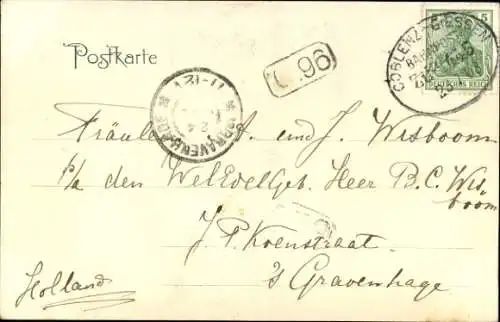 Postkarte
96
COBLENZ-GIESSEN
5
DEUTSCHES REICH
'SGRAVENHAGE
Fräulein A. und J. Wisboom
p/a den WelEdelGeb. Heer B.C. Wis-
boom
J. P. Koenstraat
's Gravenhage
Holland